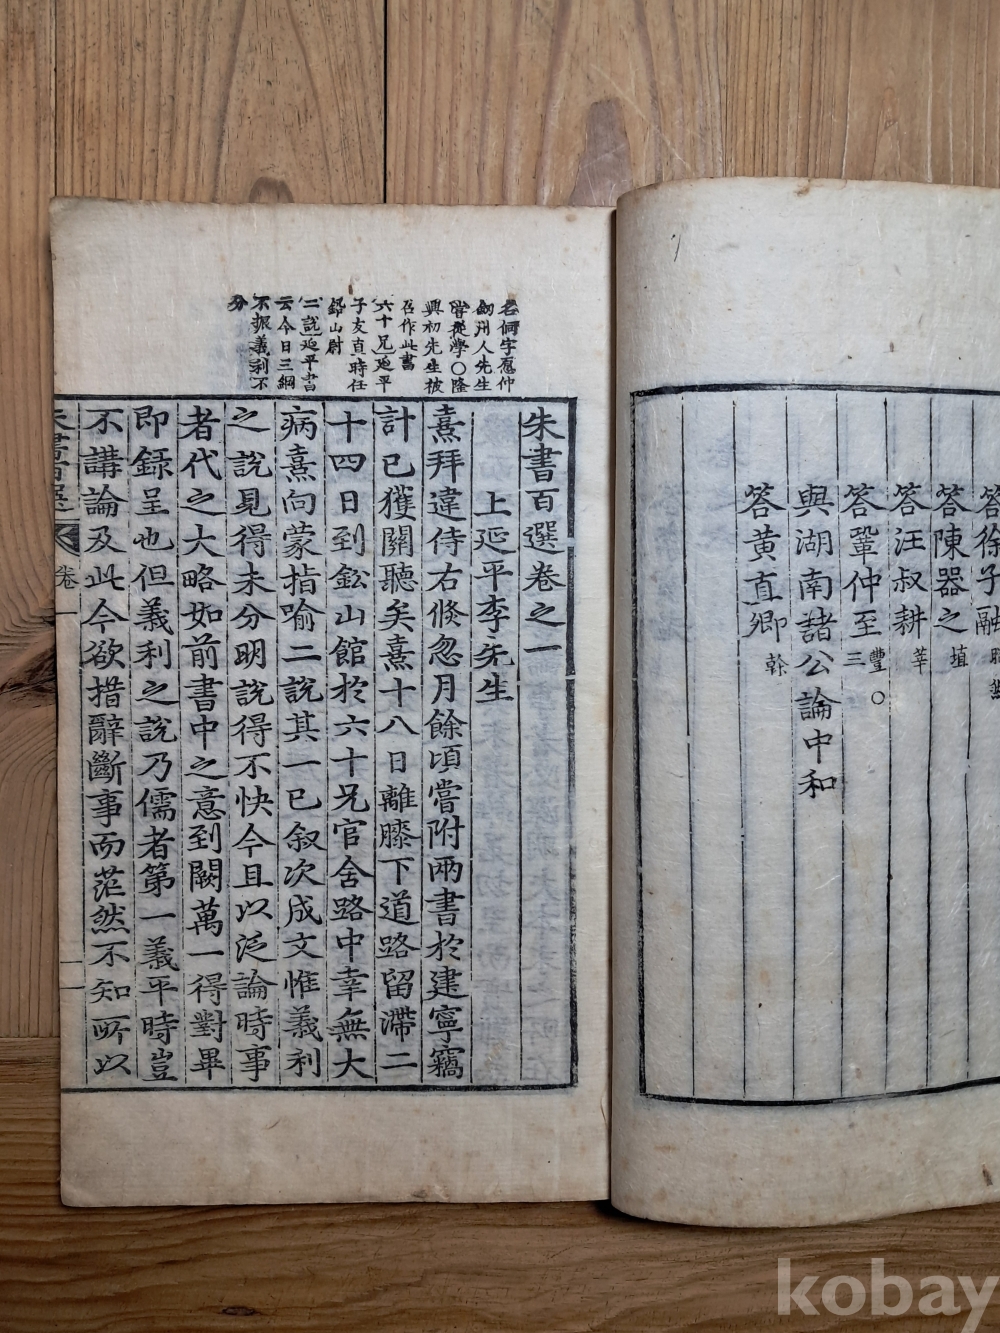 答徐子融
答陳器之 埴
答汪叔耕 莘
答鞏仲至 豐 三 ○
與湖南諸公論中和
答黃直卿 榦
名侗字愿仲
劒州人先生
嘗從學○隆
興初先生被
召作此書
六十兄延平
子友直時任
鉛山尉
二說延平書
云今日三綱
不振義利不
分
朱書百選卷之一
上延平李先生
熹拜違侍右倐忽月餘頃嘗附兩書於建寧竊
計已獲關聽矣熹十八日離膝下道路留滯二
十四日到鈆山館於六十兄官舍路中幸無大
病熹向蒙指喻二說其一已叙次成文惟義利
之說見得未分明說得不快今且以泛論時事
者代之大略如前書中之意到闕萬一得對畢
即錄呈也但義利之說乃儒者第一義平時豈
不講論及此今欲措辭斷事而茫然不知所以
朱書百選 卷一
kobay